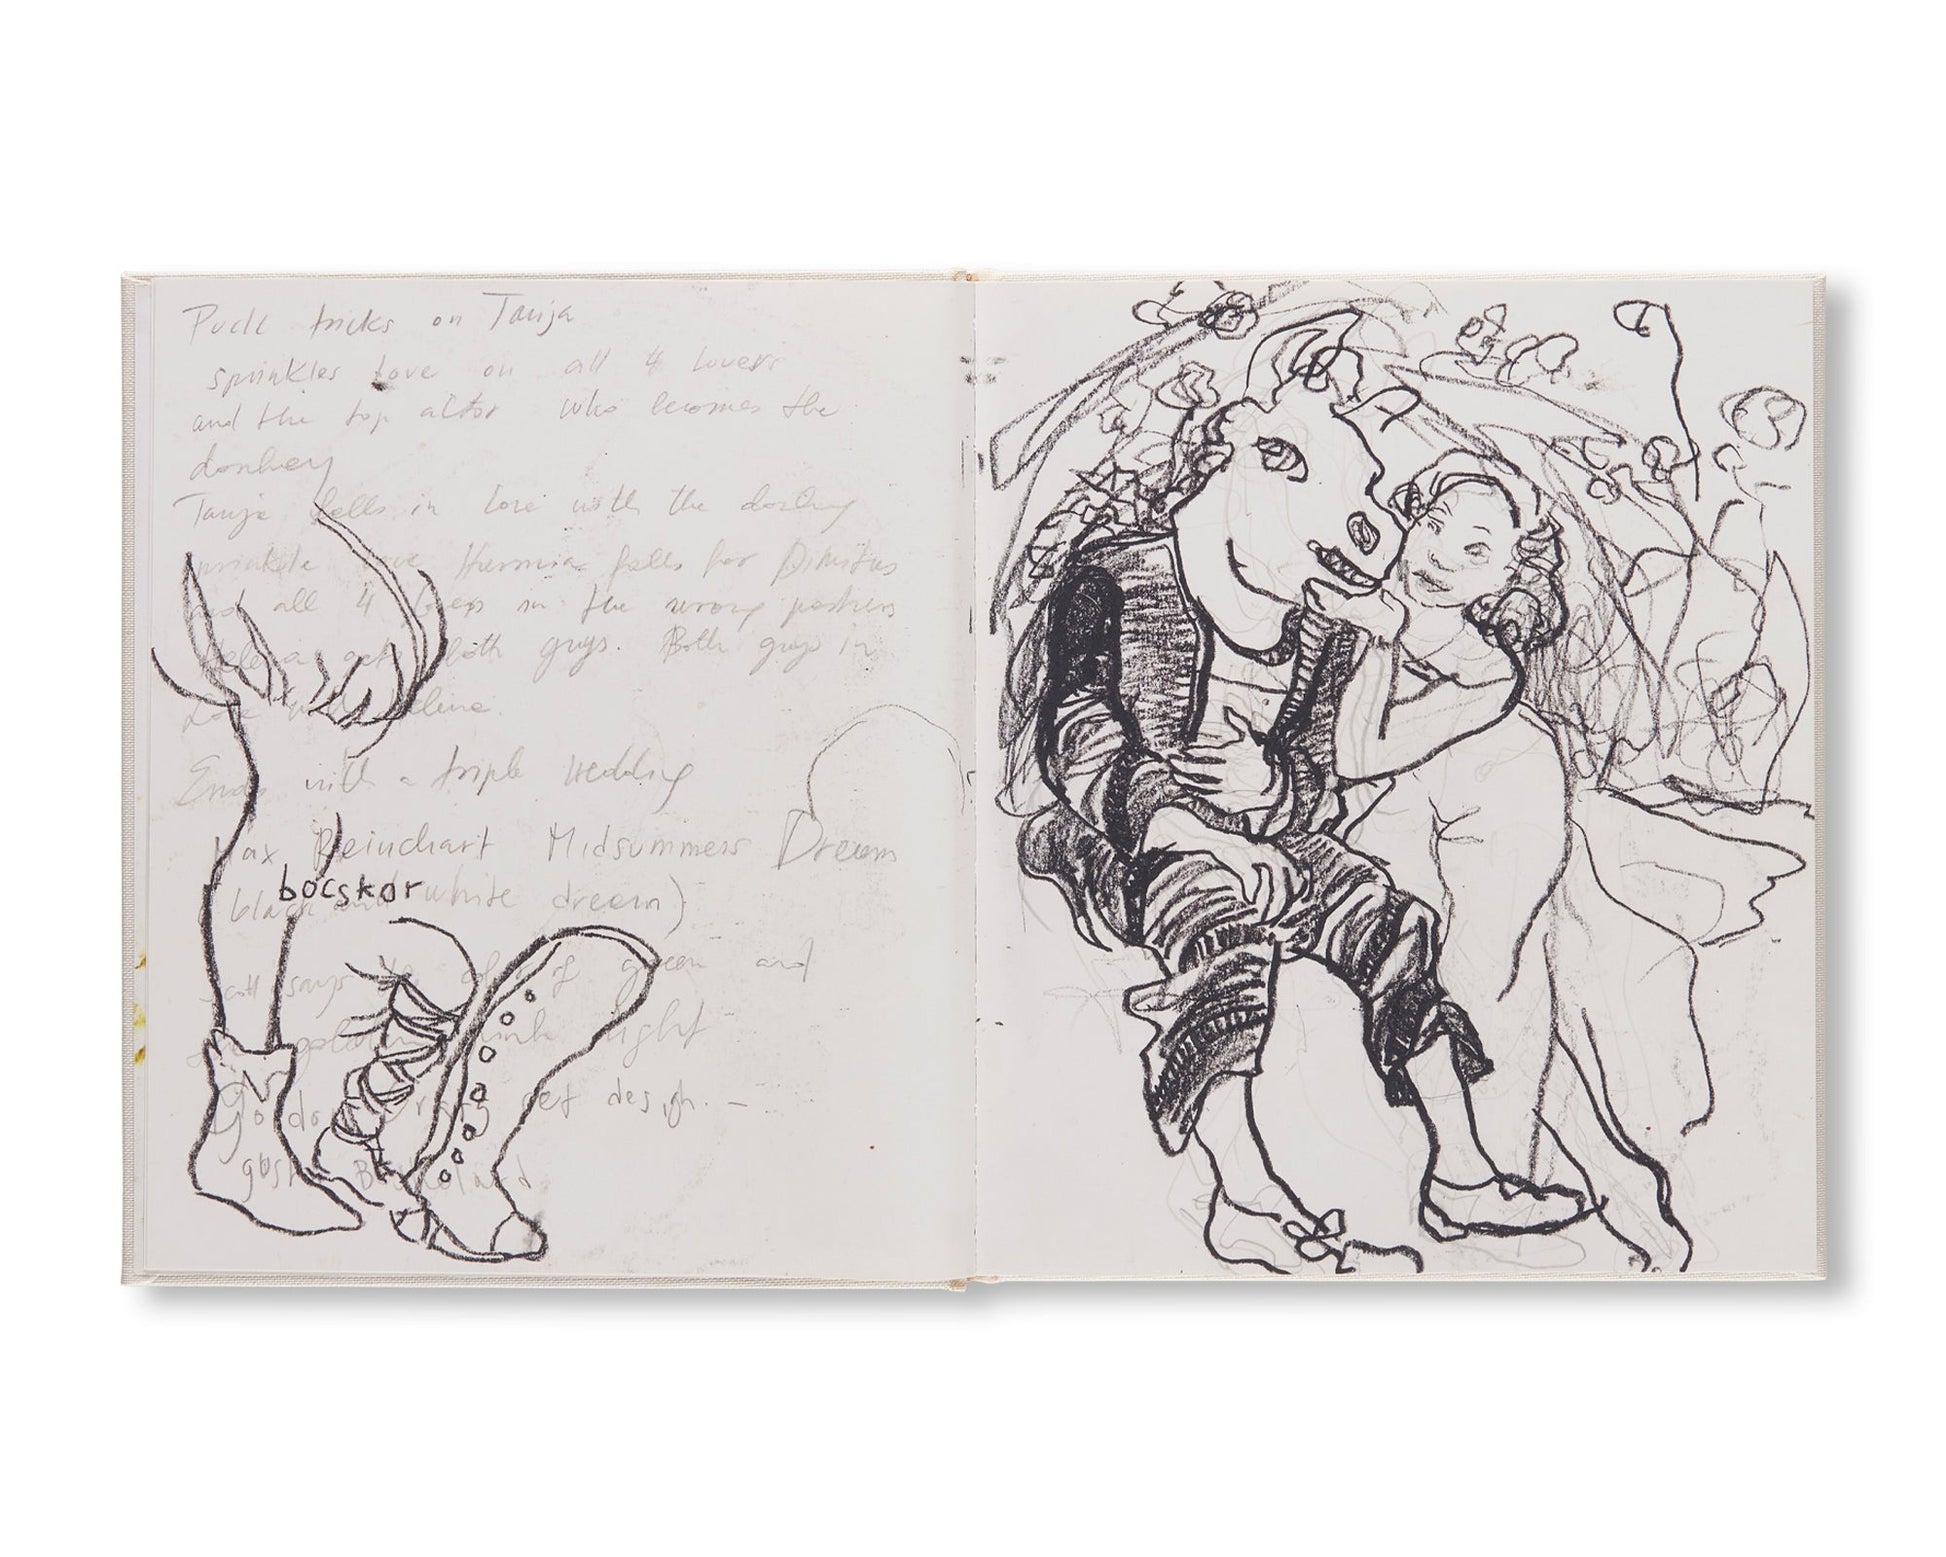 Puck tricks on Tanija
sprinkles love on all 4 lovers
and the top actor who becomes the
donkey
falls in love with the donkey
love Hermia falls for Dimitus
and all 4 in the wrong
both guys. Both guys in
Love
Ends with a triple Wedding
Max Reinchart Midsummers Dream
bocskor
black and white dream)
Scott says of green and
pink light
set design. –